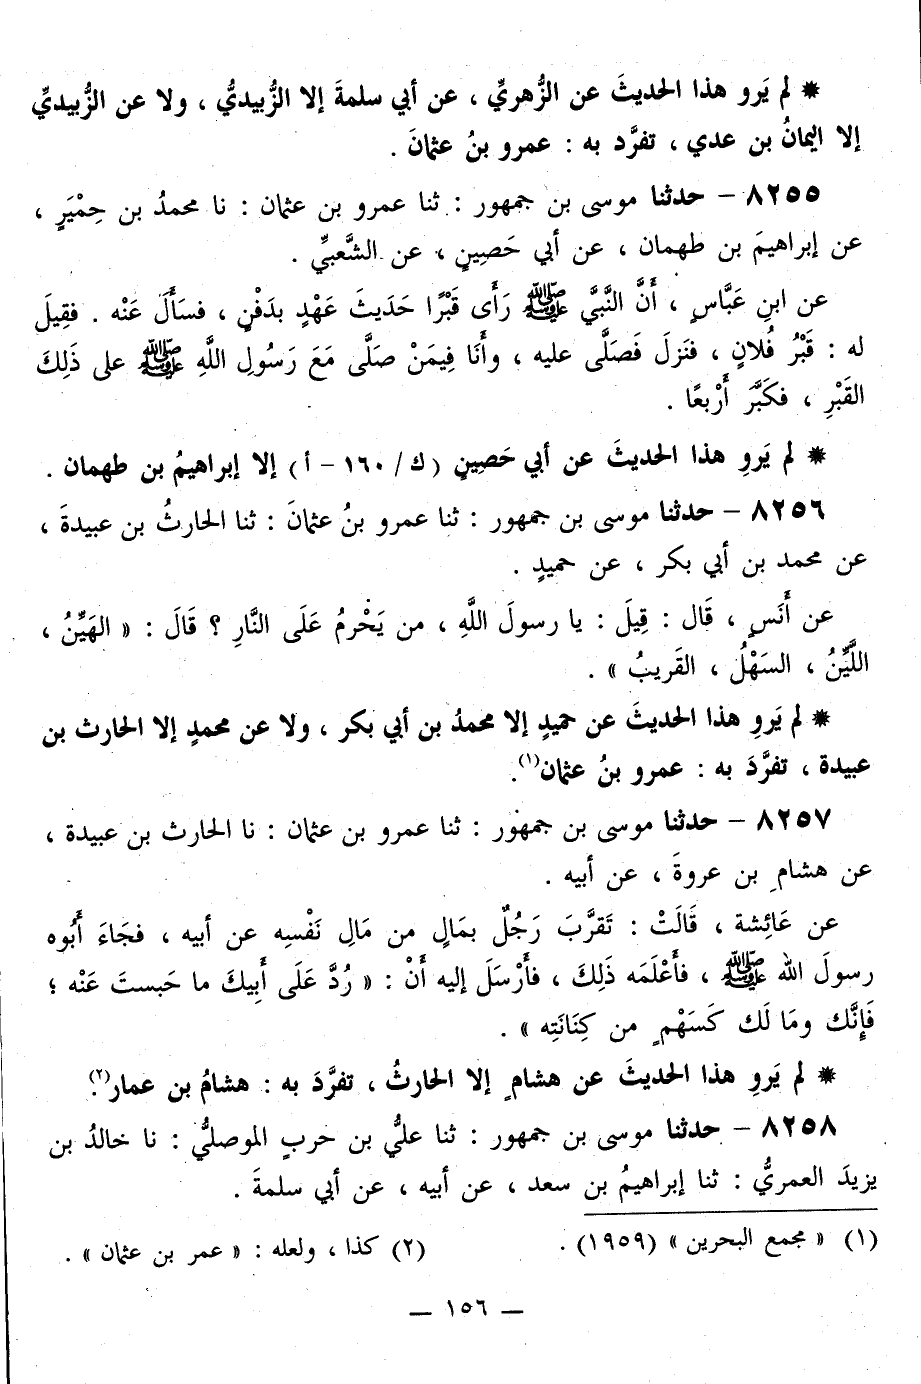 * لم يَرو هذا الحديثَ عن الزُّهريِّ ، عن أبي سلمةَ إلا الزُّبيديُّ ، ولا عن الزُّبيديِّ
إلا اليمانُ بن عدي ، تفرَّد به : عمرو بنُ عثمانَ .
٨٢٥٥ – حدثنا موسى بن جمهور : ثنا عمرو بن عثمان : نا محمدُ بن حِمْيَرٍ ،
عن إبراهيمَ بن طهمان ، عن أبي حَصِينٍ ، عن الشَّعبيِّ .
عن ابنِ عَبَّاسٍ ، أَنَّ النَّبيَّ ﷺ رَأَى قَبْرًا حَديثَ عَهْدٍ بدَفْنٍ ، فسَأَلَ عَنْه . فقِيلَ
له : قَبْرُ فُلانٍ ، فنَزلَ فَصلَّى عليه ، وأَنَا فِيمَنْ صلَّى مَعَ رَسُولِ اللَّهِ ﷺ على ذَلِكَ
القَبْرِ ، فكَبَّرَ أَرْبعًا .
* لم يَروِ هذا الحديثَ عن أبي حَصِينٍ (ك/١٦٠ – أ) إلا إبراهيمُ بن طهمان .
٨٢٥٦ – حدثنا موسى بن جمهور : ثنا عمرو بنُ عثمانَ : ثنا الحارثُ بن عبيدةَ ،
عن محمد بن أبي بكر ، عن حميدٍ .
عن أَنَسٍ ، قَال : قِيلَ : يا رسولَ اللَّهِ ، من يَحْرمُ عَلَى النَّارِ ؟ قَالَ : « الهَيِّنُ ،
اللَّيِّنُ ، السَهْلُ ، القَريبُ » .
* لم يَروِ هذا الحديثَ عن حميدٍ إلا محمدُ بن أبي بكر ، ولا عن محمدٍ إلا الحارث بن
عبيدة ، تفرَّدَ به : عمرو بنُ عثمان(١).
٨٢٥٧ – حدثنا موسى بن جمهور : ثنا عمرو بن عثمان : نا الحارث بن عبيدة ،
عن هشامِ بن عروةَ ، عن أبيه .
عن عَائِشة ، قَالَتْ : تَقرَّبَ رَجُلٌ بمَالٍ من مَالِ نَفْسِه عن أبيه ، فجَاءَ أَبُوه
رسولَ الله ﷺ ، فأَعْلَمَه ذَلِكَ ، فأَرْسَلَ إليه أَنْ : « رُدَّ عَلَى أَبِيكَ ما حَبستَ عَنْه ؛
فَإِنَّك ومَا لَك كَسَهْمٍ من كِنَانَتِه » .
* لم يَروِ هذا الحديثَ عن هشامٍ إلا الحارثُ ، تفرَّدَ به : هشامُ بن عمار(٢).
٨٢٥٨ – حدثنا موسى بن جمهور : ثنا عليُّ بن حربٍ الموصليُّ : نا خالدُ بن
يزيدَ العمريُّ : ثنا إبراهيمُ بن سعد ، عن أبيه ، عن أبي سلمةَ .
(١) « مجمع البحرين » (١٩٥٩) .
(٢) كذا ، ولعله : « عمر بن عثمان » .
— ١٥٦ —